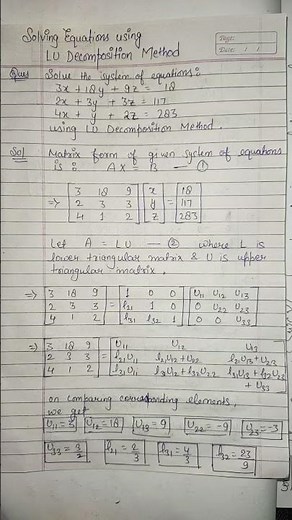 Solving Equations using
LU Decomposition Method
Date: / /
Ques Solve the system of equations:
3x + 18y + 9z = 18
2x + 3y + 3z = 117
4x + y + 2z = 283
using LU Decomposition Method.
Sol Matrix form of given system of equations
is: AX = B — ①
⇒ [3 18 9] [x] = [18]
[2 3 3] [y] [117]
[4 1 2] [z] [283]
Let A = LU — ② where L is
lower triangular matrix & U is upper
triangular matrix.
⇒ [3 18 9] = [1 0 0] [U11 U12 U13]
[2 3 3] [l21 1 0] [0 U22 U23]
[4 1 2] [l31 l32 1] [0 0 U33]
⇒ [3 18 9] = [U11 U12 U13]
[2 3 3] [l21U11 l21U12+U22 l21U13+U23]
[4 1 2] [l31U11 l31U12+l32U22 l31U13+l32U23
+ U33]
on comparing corresponding elements,
we get
U11 = 3 U12 = 18 U13 = 9 U22 = -9 U23 = -3
U33 = l21 = 2/3 l31 = 4/3 l32 = 23/9